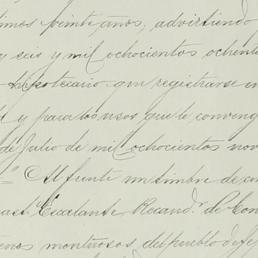 timos veinte años; advirtiendo
y seis y mil ochocientos ochent
potecario que registrarse en
y para los usos que le conveng
de Julio de mil ochocientos nov
Al frente un timbre de cin
Escalante Recaudr. de Con
montuosos, del pueblo de